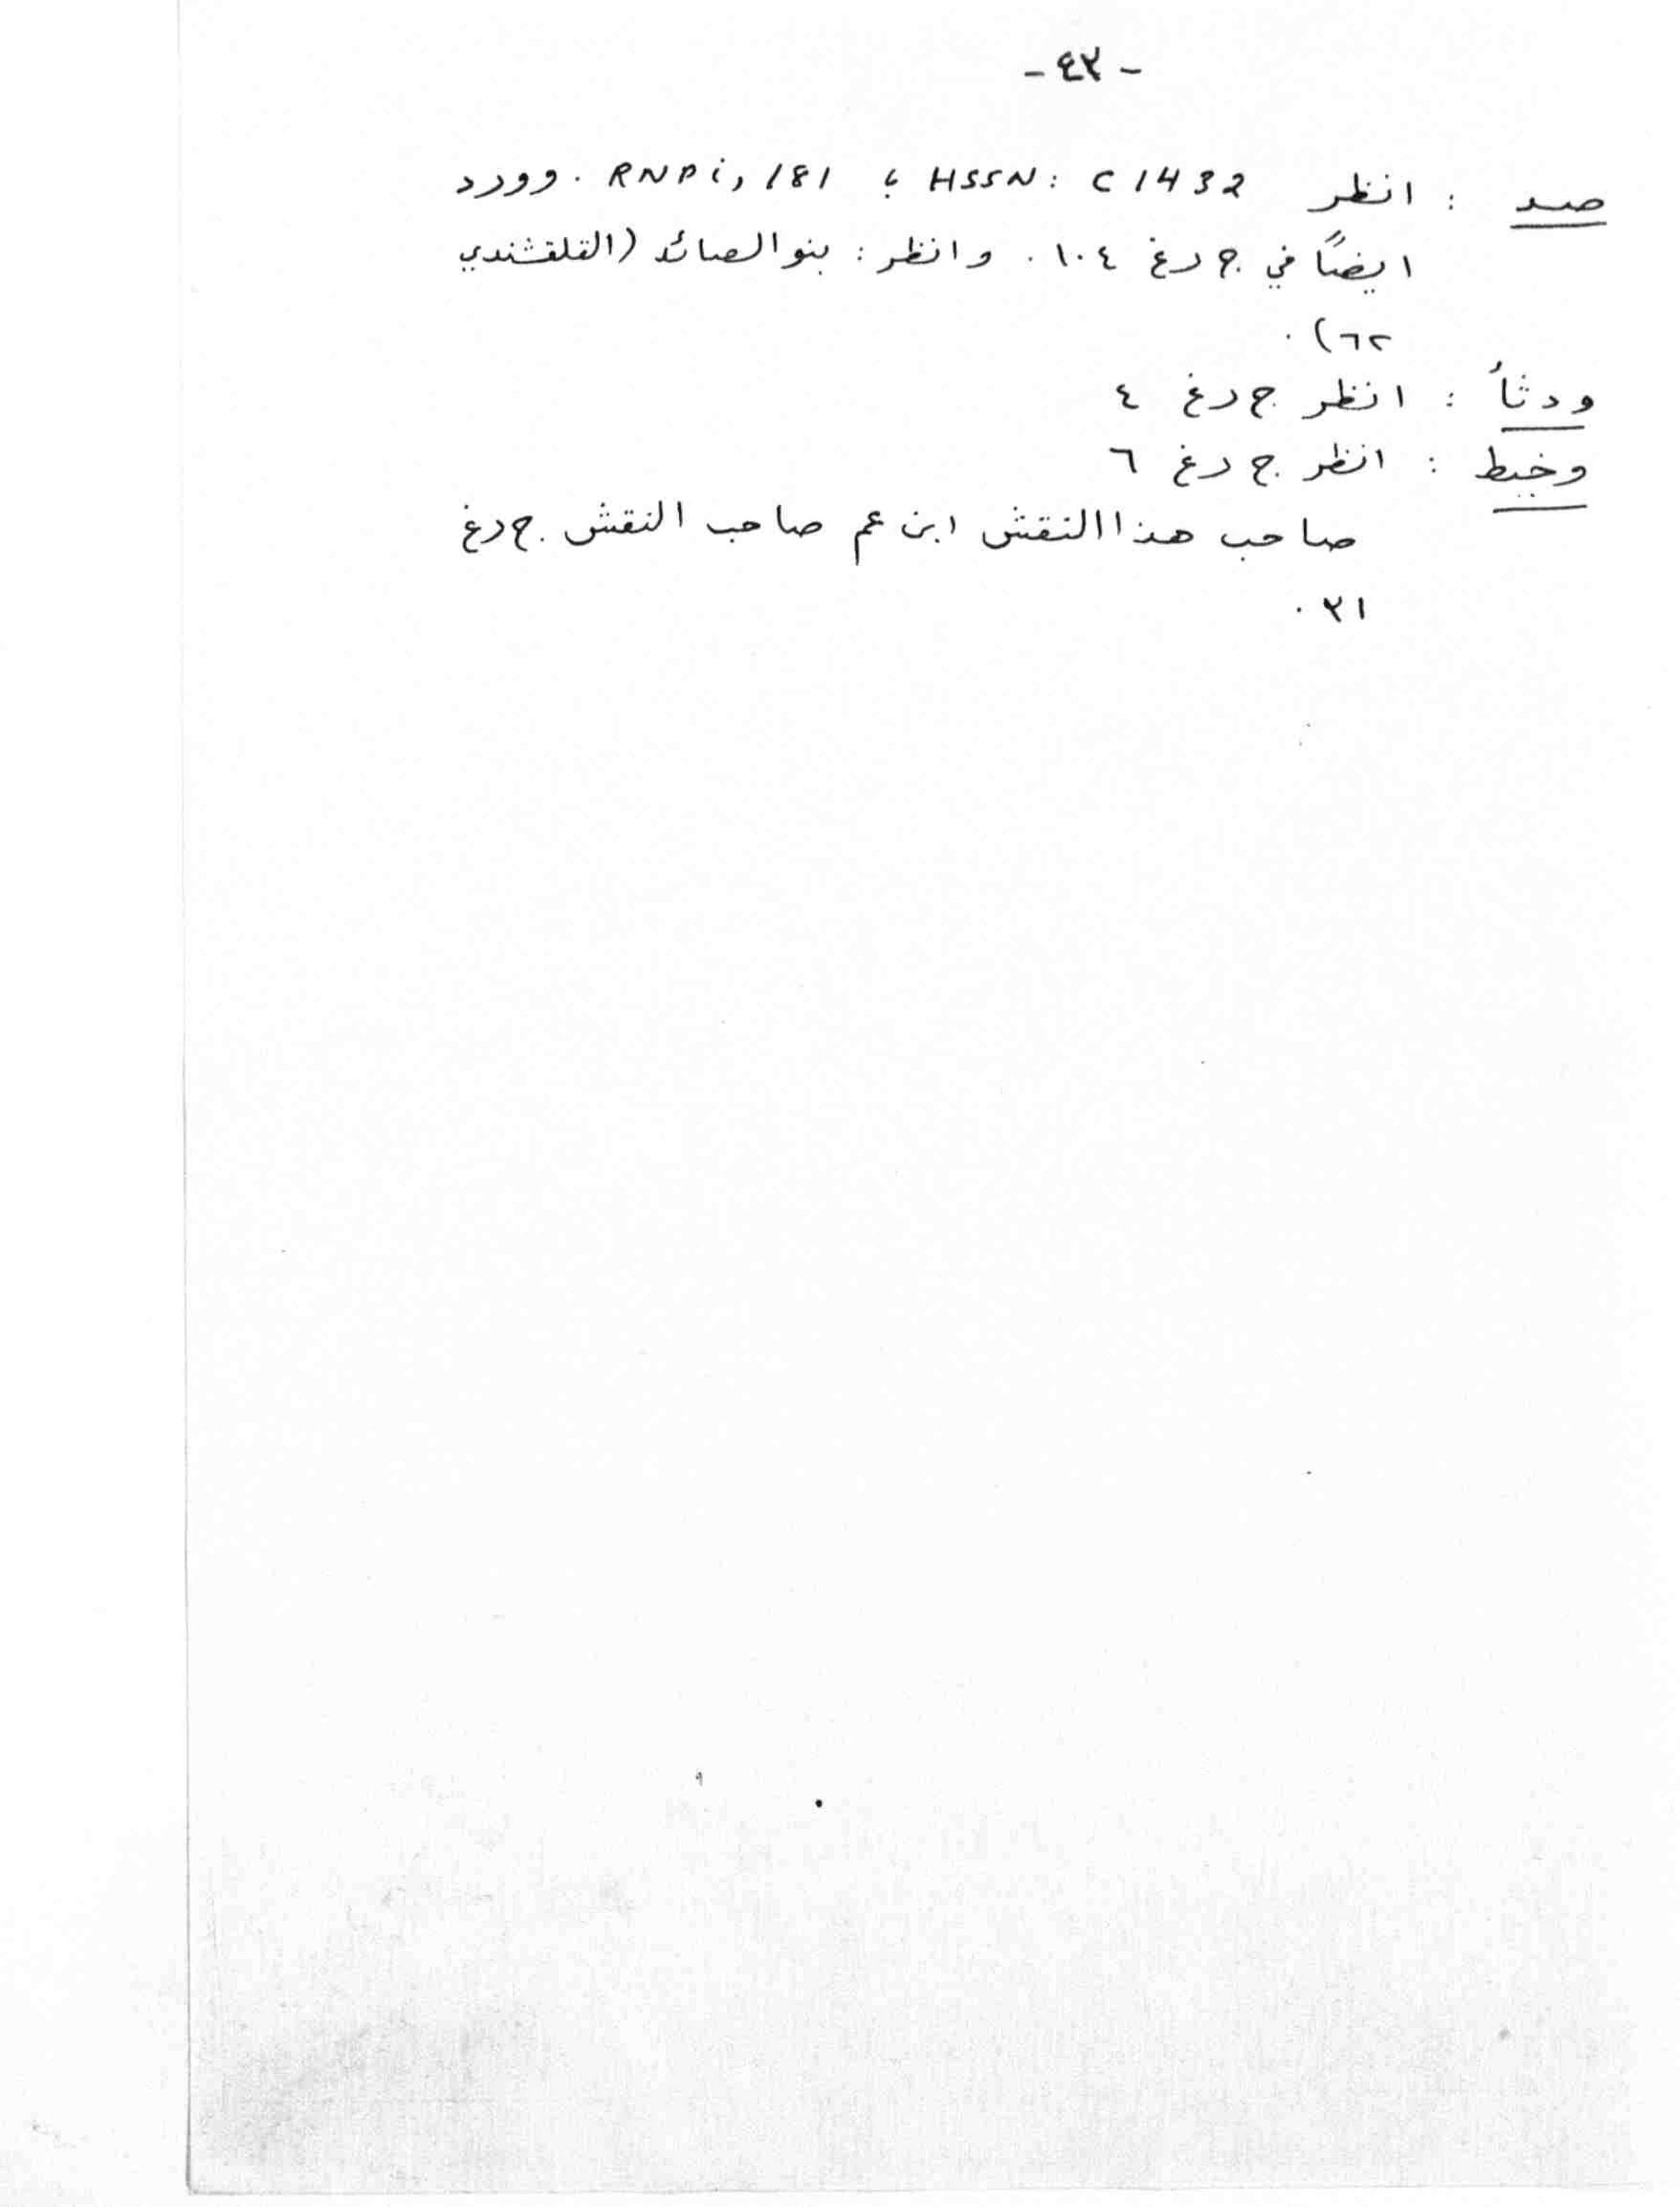 - ٤٣ -
صد : انظر HSSN: C 1432 ؛ RNP i, 181 . وورد
ايضاً في ج د غ ١٠٤ . وانظر : بنو الصائد (القلقشندي
٦٢) .
ودثأ : انظر ج د غ ٤
وخيط : انظر ج د غ ٦
صاحب هذا النقش ابن عم صاحب النقش ج د غ
٣١ .